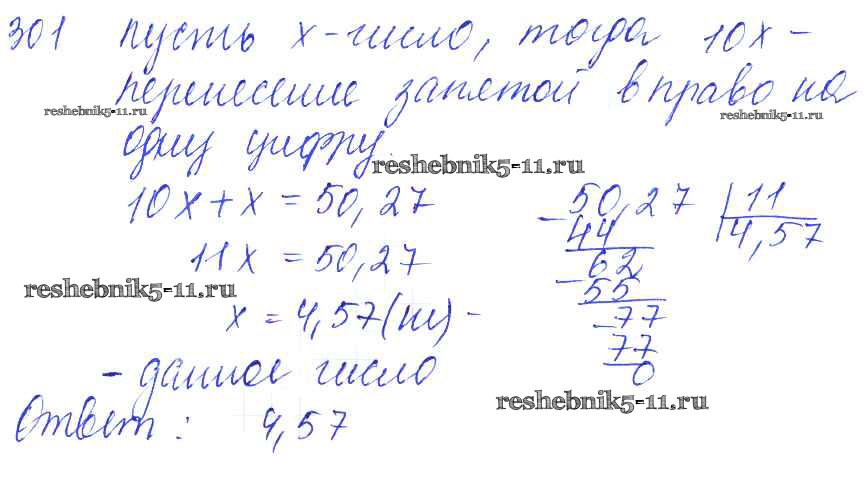 301 пусть x - число, тогда 10x -
перенесение запятой вправо на
reshebnik5-11.ru reshebnik5-11.ru
одну цифру.
reshebnik5-11.ru
10x + x = 50,27
11x = 50,27
reshebnik5-11.ru
x = 4,57 ( ) -
- данное число
Ответ: 4,57
50,27 | 11
- 44 4,57
62
- 55
77
- 77
0
reshebnik5-11.ru